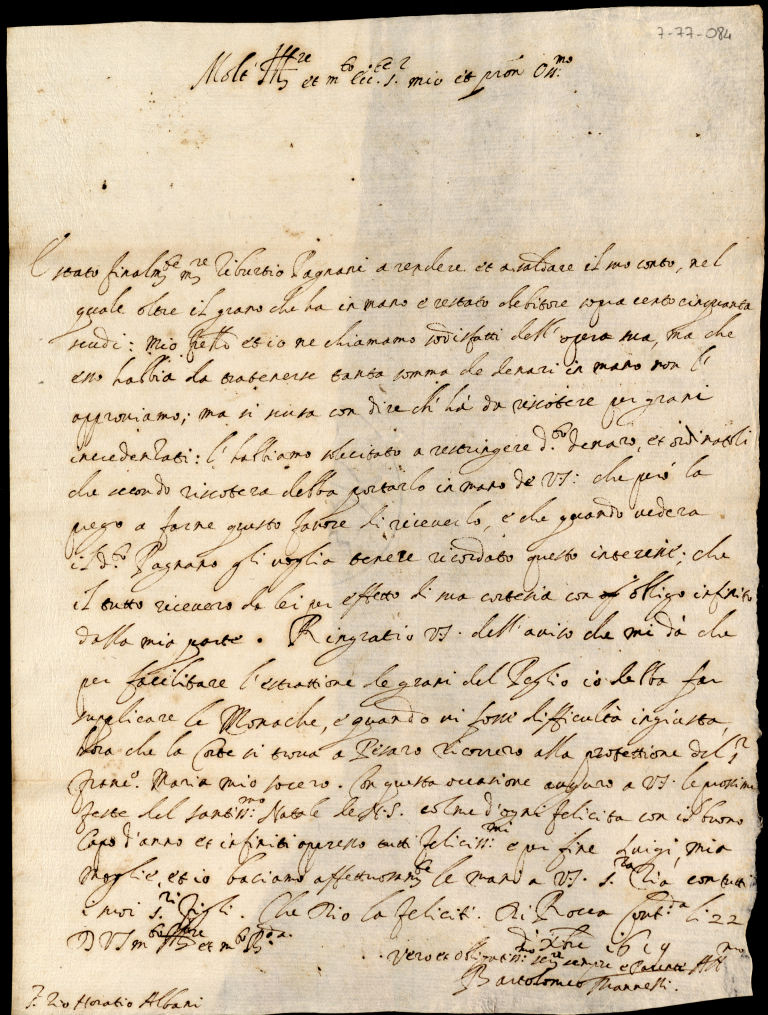 7-77-084
Molt' Ill.re et m.to ecc.te s.r mio et pron Oss.mo
È stato finalm.te m.re Tiburtio Pagnani a rendere et a saldare il suo conto, nel
quale oltre il grano che ha in mano è restato debitore sopra cento cinquanta
scudi: mio et io ne chiamamo sodisfatti dell'opera sua, ma che
esso habbia da tratenerse tanta somma de denari in mano non l'
approviamo; ma si scusa con dire ch' ha da riscotere per grani
: l'habbiamo solecitato a restringere d.to denaro, et ordinatoli
che secondo riscoterà debba portarlo in mano de VS: che però la
prego a farne questo favore di riceverlo, e che quando vederà
il d.to Pagnano gli voglia tenere ricordato questo interesse; che
il tutto riceverò da lei per effetto di sua cortesia con obligo infinito
dalla mia parte. Ringratio VS. dell'aviso che mi dà che
per facilitare l'estrattione de grani del Peglio io debba far
supplicare le Monache, e quando vi fosse difficultà ingiusta,
hora che la Corte si trova a Pesaro ricorrerò alla protettione del s.r
Franc.o Maria mio socero. Con questa occasione auguro a VS. le prossime
feste del santiss.mo Natale de N.S. colme d'ogni felicità con il buono
Capo d'anno et infiniti appresso tutti feliciss.mi e per fine Luigi, mia
moglie, et io baciamo affettuosam.te le mani a VS. s.ra Tia con tutti
i suoi s.ri figli. Che Dio la feliciti. Di Rocca Cont.da li 22
di Xbre 1619
D VS m.to Ill.re et m.to R.da
Vero et obligatiss.mo ser.re sempre e Parente Aff.mo
Bartolomeo
s. Zio Horatio Albani